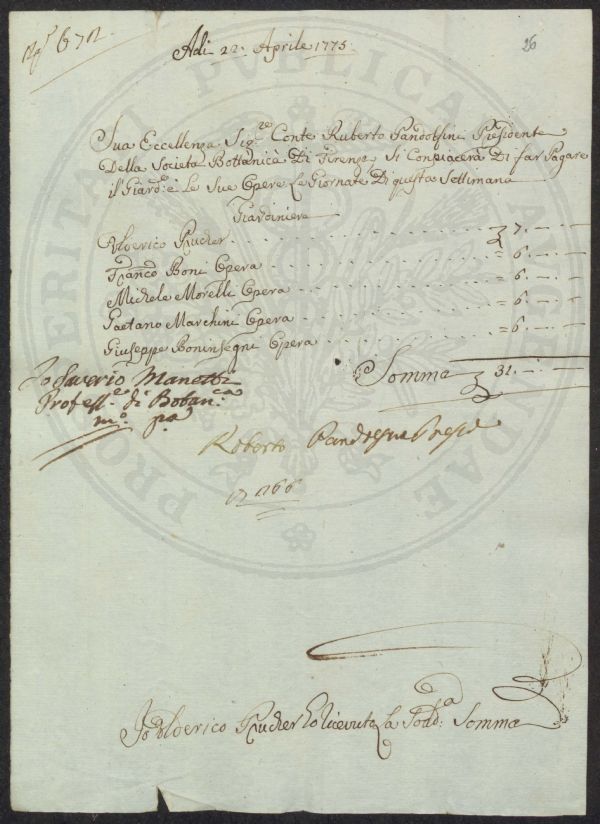 N.° 672
26
Adi 22. Aprile 1775.
Sua Eccellenza Sig.re Conte Ruberto Pandolfini Presidente
Della Societa Bottanica Di Firenze Si Conpiacerà Di far Pagare
il Giard:e è Le Sue Opere Le Giornate Di questa Settimana
Giardiniere
Ulderico Prucher . . . . . 7. — . —
Franco Boni Opera . . . . = 6. — . —
Michele Morelli Opera . . . . = 6. — . —
Gaetano Marchini Opera . . . . = 6. — . —
Giuseppe Boninsegni Opera . . . . = 6. — . —
Somma 31. — . —
Io Saverio Manetti
Profess.re di Botan.ca
m.o pa
Roberto Pandolfini Presid
166
Io Ulderico Prucher ho ricevuto La Sod:a Somma
PROSPERITATI PVBLICAE AVGENDAE